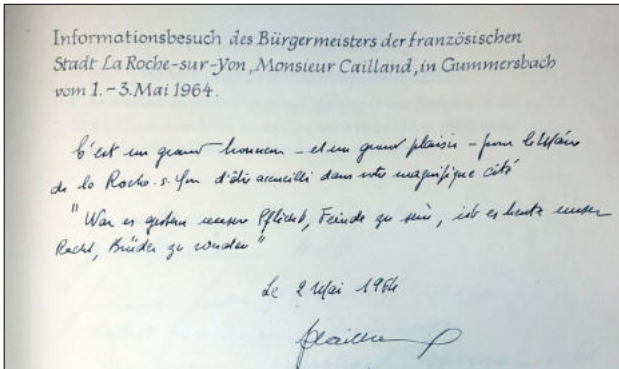 Informationsbesuch des Bürgermeisters der französischen
Stadt La Roche-sur-Yon, Monsieur Cailland, in Gummersbach
vom 1.-3. Mai 1964.
C'est un grand honneur - et un grand plaisir - pour le Maire
de la Roche. s. Yon d'être accueilli dans votre magnifique cité
"War es gestern unsere Pflicht, Feinde zu sein, ist es heute unser
Recht, Brüder zu werden"
Le 2 Mai 1964